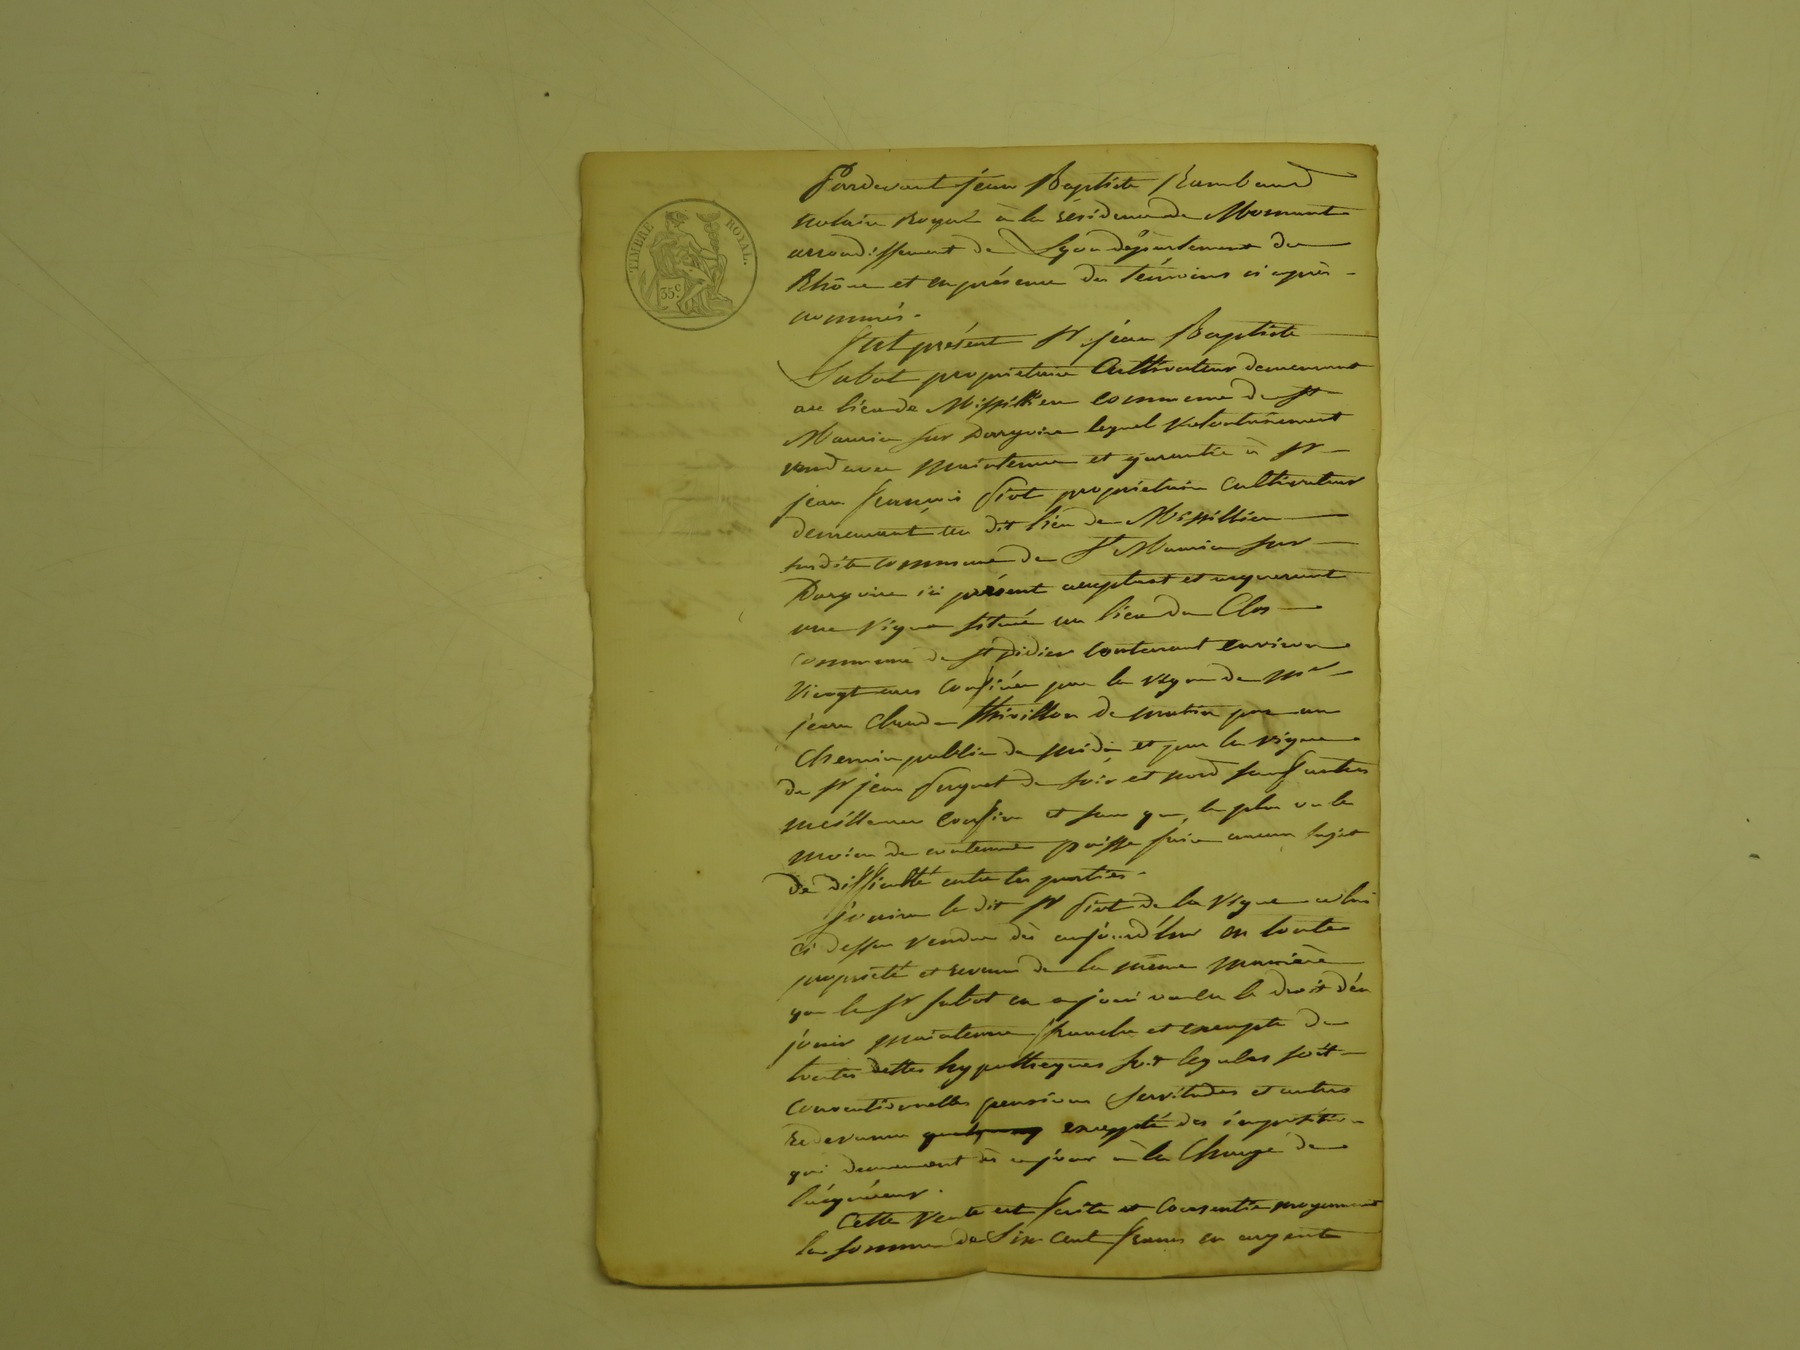 TIMBRE ROYAL.
35.c
Pardevant jean Baptiste Rambaud
notaire Royal à la résidence de Mornant
arrondissement de Lyon département du
Rhône et en présence des témoins ci après
nommés.
Fut présent Sr jean Baptiste
Sabot propriétaire Cultivateur demeurant
au lieu de Missillieu commune de St
Maurice sur Dargoire lequel volontairement
vend avec maintenue et garantie à Sr
jean françois Piot propriétaire Cultivateur
demeurant au dit lieu de Missillieu
susdite commune de St Maurice sur
Dargoire ici présent acceptant et acquerant
une Vigne située au lieu du Clos
commune de St Didier contenant environ
Vingt ares Confinée par la vigne de Mr
jean Claude Thivillon de matin par un
Chemin public de midi et par la vigne
de Sr jean de soir et nord sauf autres
meilleurs Confins et sans que le plus ou le
moins de contenue puisse faire aucun sujet
de difficulté entre les parties.
jouira le dit Sr Piot de la Vigne a lui
ci dessus vendue dès aujourd'hui en toute
propriété et revenu de la même manière
que le Sr Sabot en a joui ou eu le droit d'en
jouir maintenue franche et exempte de
toutes dettes hypothèques soit legales soit
conventionnelles pensions servitudes et autres
redevances excepté des impositions
qui demeurent dès ce jour à la Charge de
l'acquéreur.
Cette Vente est faite et Consentie moyennant
la somme de Six Cent francs en argent